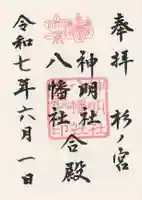 奉拝 杉ノ宮
神明社
八幡社
合殿
令和七年六月一日